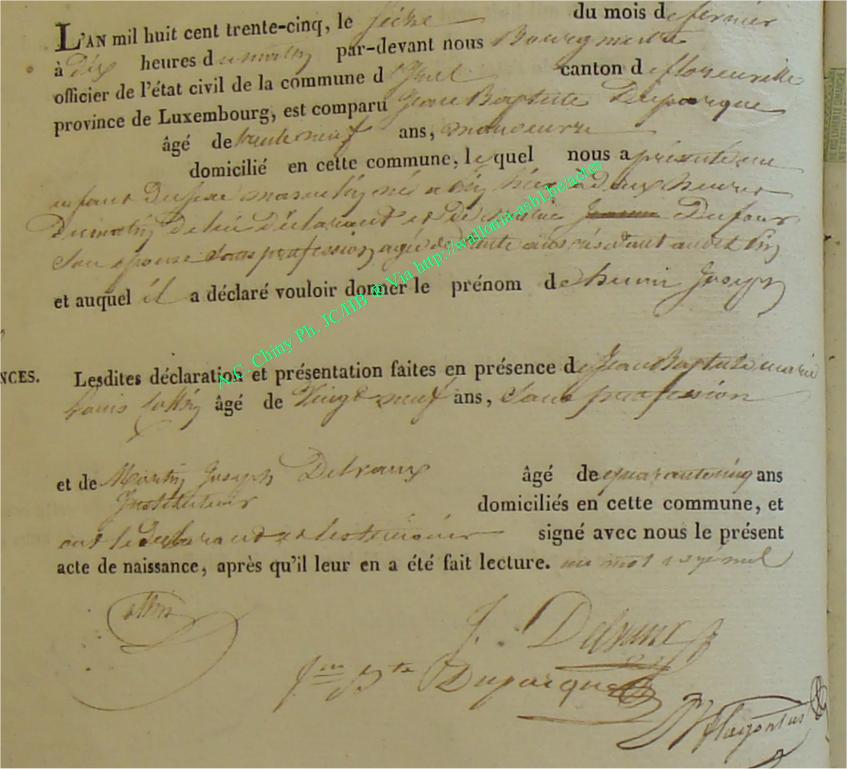 L'AN mil huit cent trente-cinq, le seize du mois de fevrier
à dix heures du matin par-devant nous Bourgmestre
officier de l'état civil de la commune d' canton de florenville
province de Luxembourg, est comparu Jean Baptiste Duparque
âgé de trente neuf ans, manoeuvre
domicilié en cette commune, lequel nous a présenté un
enfant Du sexe masculin né a hier a deux heures
Du matin De lui déclarant et De Dufour
Son épouse Sans profession agée de trente ans résidant audit
et auquel il a déclaré vouloir donner le prénom de henri Joseph
NCES. Lesdites déclaration et présentation faites en présence de Jean Baptiste marie
Louis âgé de Vingt neuf ans, Sans profession
et de Martin Joseph Delvaux âgé de quarante cinq ans
Instituteur domiciliés en cette commune, et
ont le Déclarant et les témoins signé avec nous le présent
acte de naissance, après qu'il leur en a été fait lecture. un mot rayé nul
J. Delvaux
Jn Bte Duparque
A.C. Chiny Ph. JC/HB & Via http://wallonia-asbl.be/actes